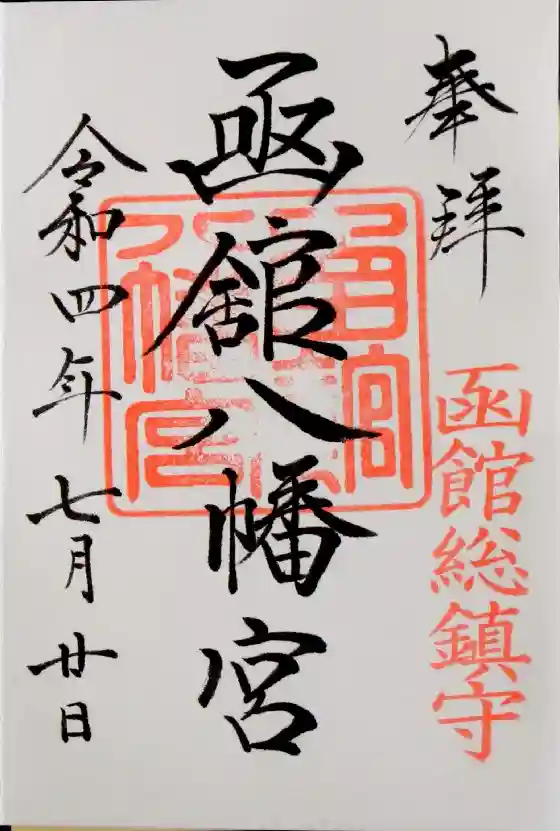 奉拝
函館総鎮守
函館八幡宮
令和四年七月廿日